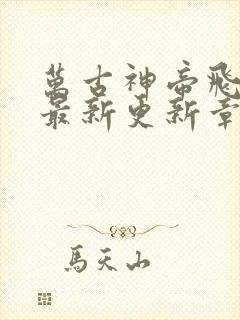 萬古神帝飛
最新更新章
馬天山